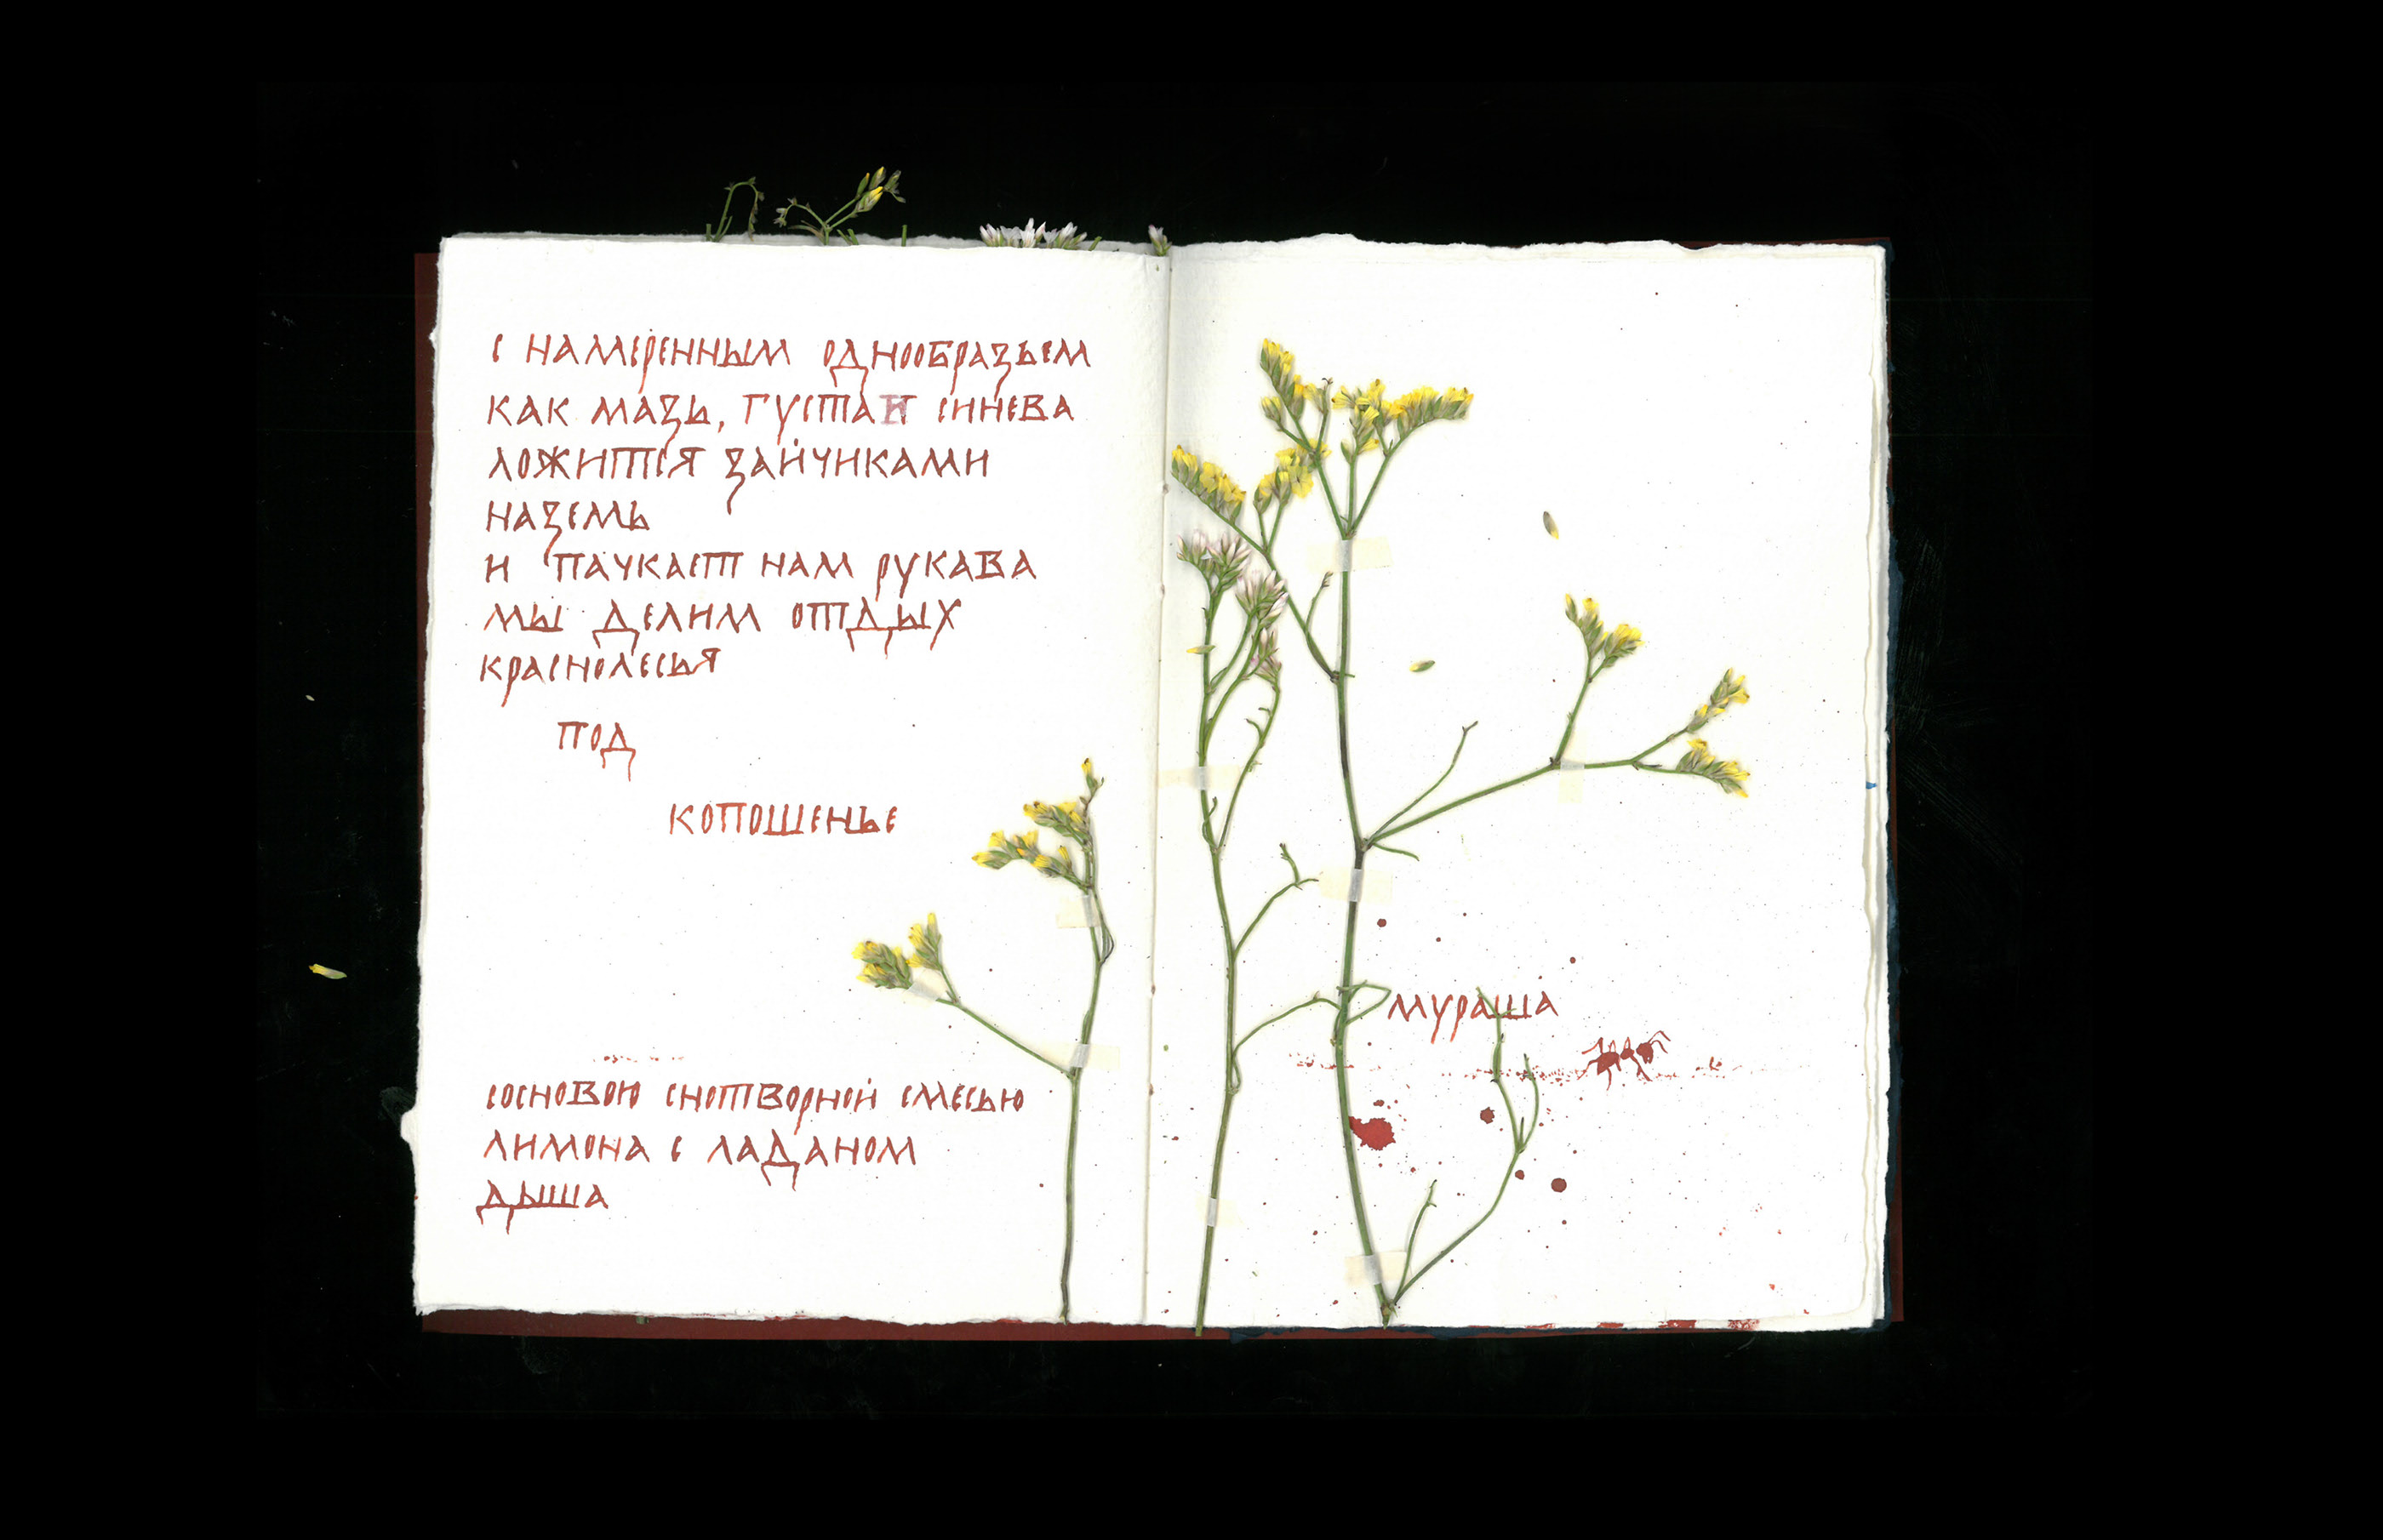 с намеренным однообразьем
как мазь, густая синева
ложится зайчиками
наземь
и пачкает нам рукава
мы делим отдых
краснолесья
под
копошенье
мураша
сосновою снотворной смесью
лимона с ладаном
дыша